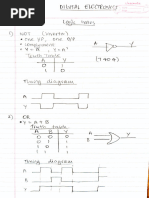 DIGITAL ELECTRONICS
Logic Gates
1) NOT (Inverter)
• One I/P, One O/P
• Complements
• Y = A̅
A Y
(7404)
Truth Table
A Y
0 1
1 0
Timing diagram
A
Y
2) OR
• Y = A + B
Truth table
A B Y
0 0 0
0 1 1
1 0 1
1 1 1
A
B
Y
Timing diagram
A
B
Y